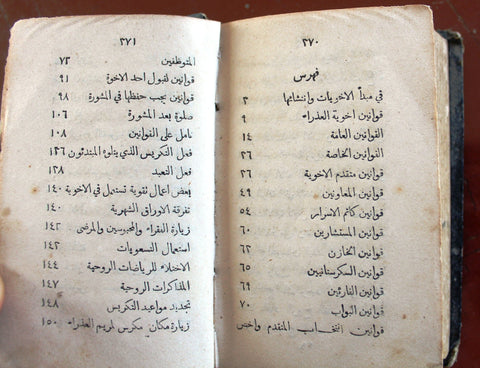 ٣٧٠
فهرس
في مبدأ الاخويات وانتشابها ٣
قوانين اخوية العذراء ٩
القوانين العامة ١٤
القوانين الخاصة ٢٦
قوانين متقدم الاخوية ٢٦
قوانين المعاونين ٤٩
قوانين كاتم الاسرار ٥٤
قوانين المستشارين ٦٠
قوانين الخازن ٦٢
قوانين السكرستانيين ٦٥
قوانين القارئين ٦٩
قوانين البواب ٧٠
قوانين انتخاب المتقدم واخص
٣٧١
المتوظفين ٧٣
قوانين لقبول احد الاخوة ٩١
قوانين يجب حفظها في المشورة ٩٨
صلوة بعد المشورة ١٠٦
تامل على القوانين ١٠٨
فعل التكريس الذي يتلوه المبتدئون ١٣٦
فعل التعبد ١٣٨
بعض اعمال تقوية تستعمل في الاخوية ١٤٠
تفرقة الاوراق الشهرية ١٤٠
زيارة الفقراء والمحبوسين والمرضى ١٤٢
استعمال التسعويات ١٤٣
الاختلاء للرياضات الروحية ١٤٤
المذاكرات الروحية ١٤٧
تجديد مواعيد التكريس ١٤٨
زيارة مكان مكرس لمريم العذراء ١٥٠